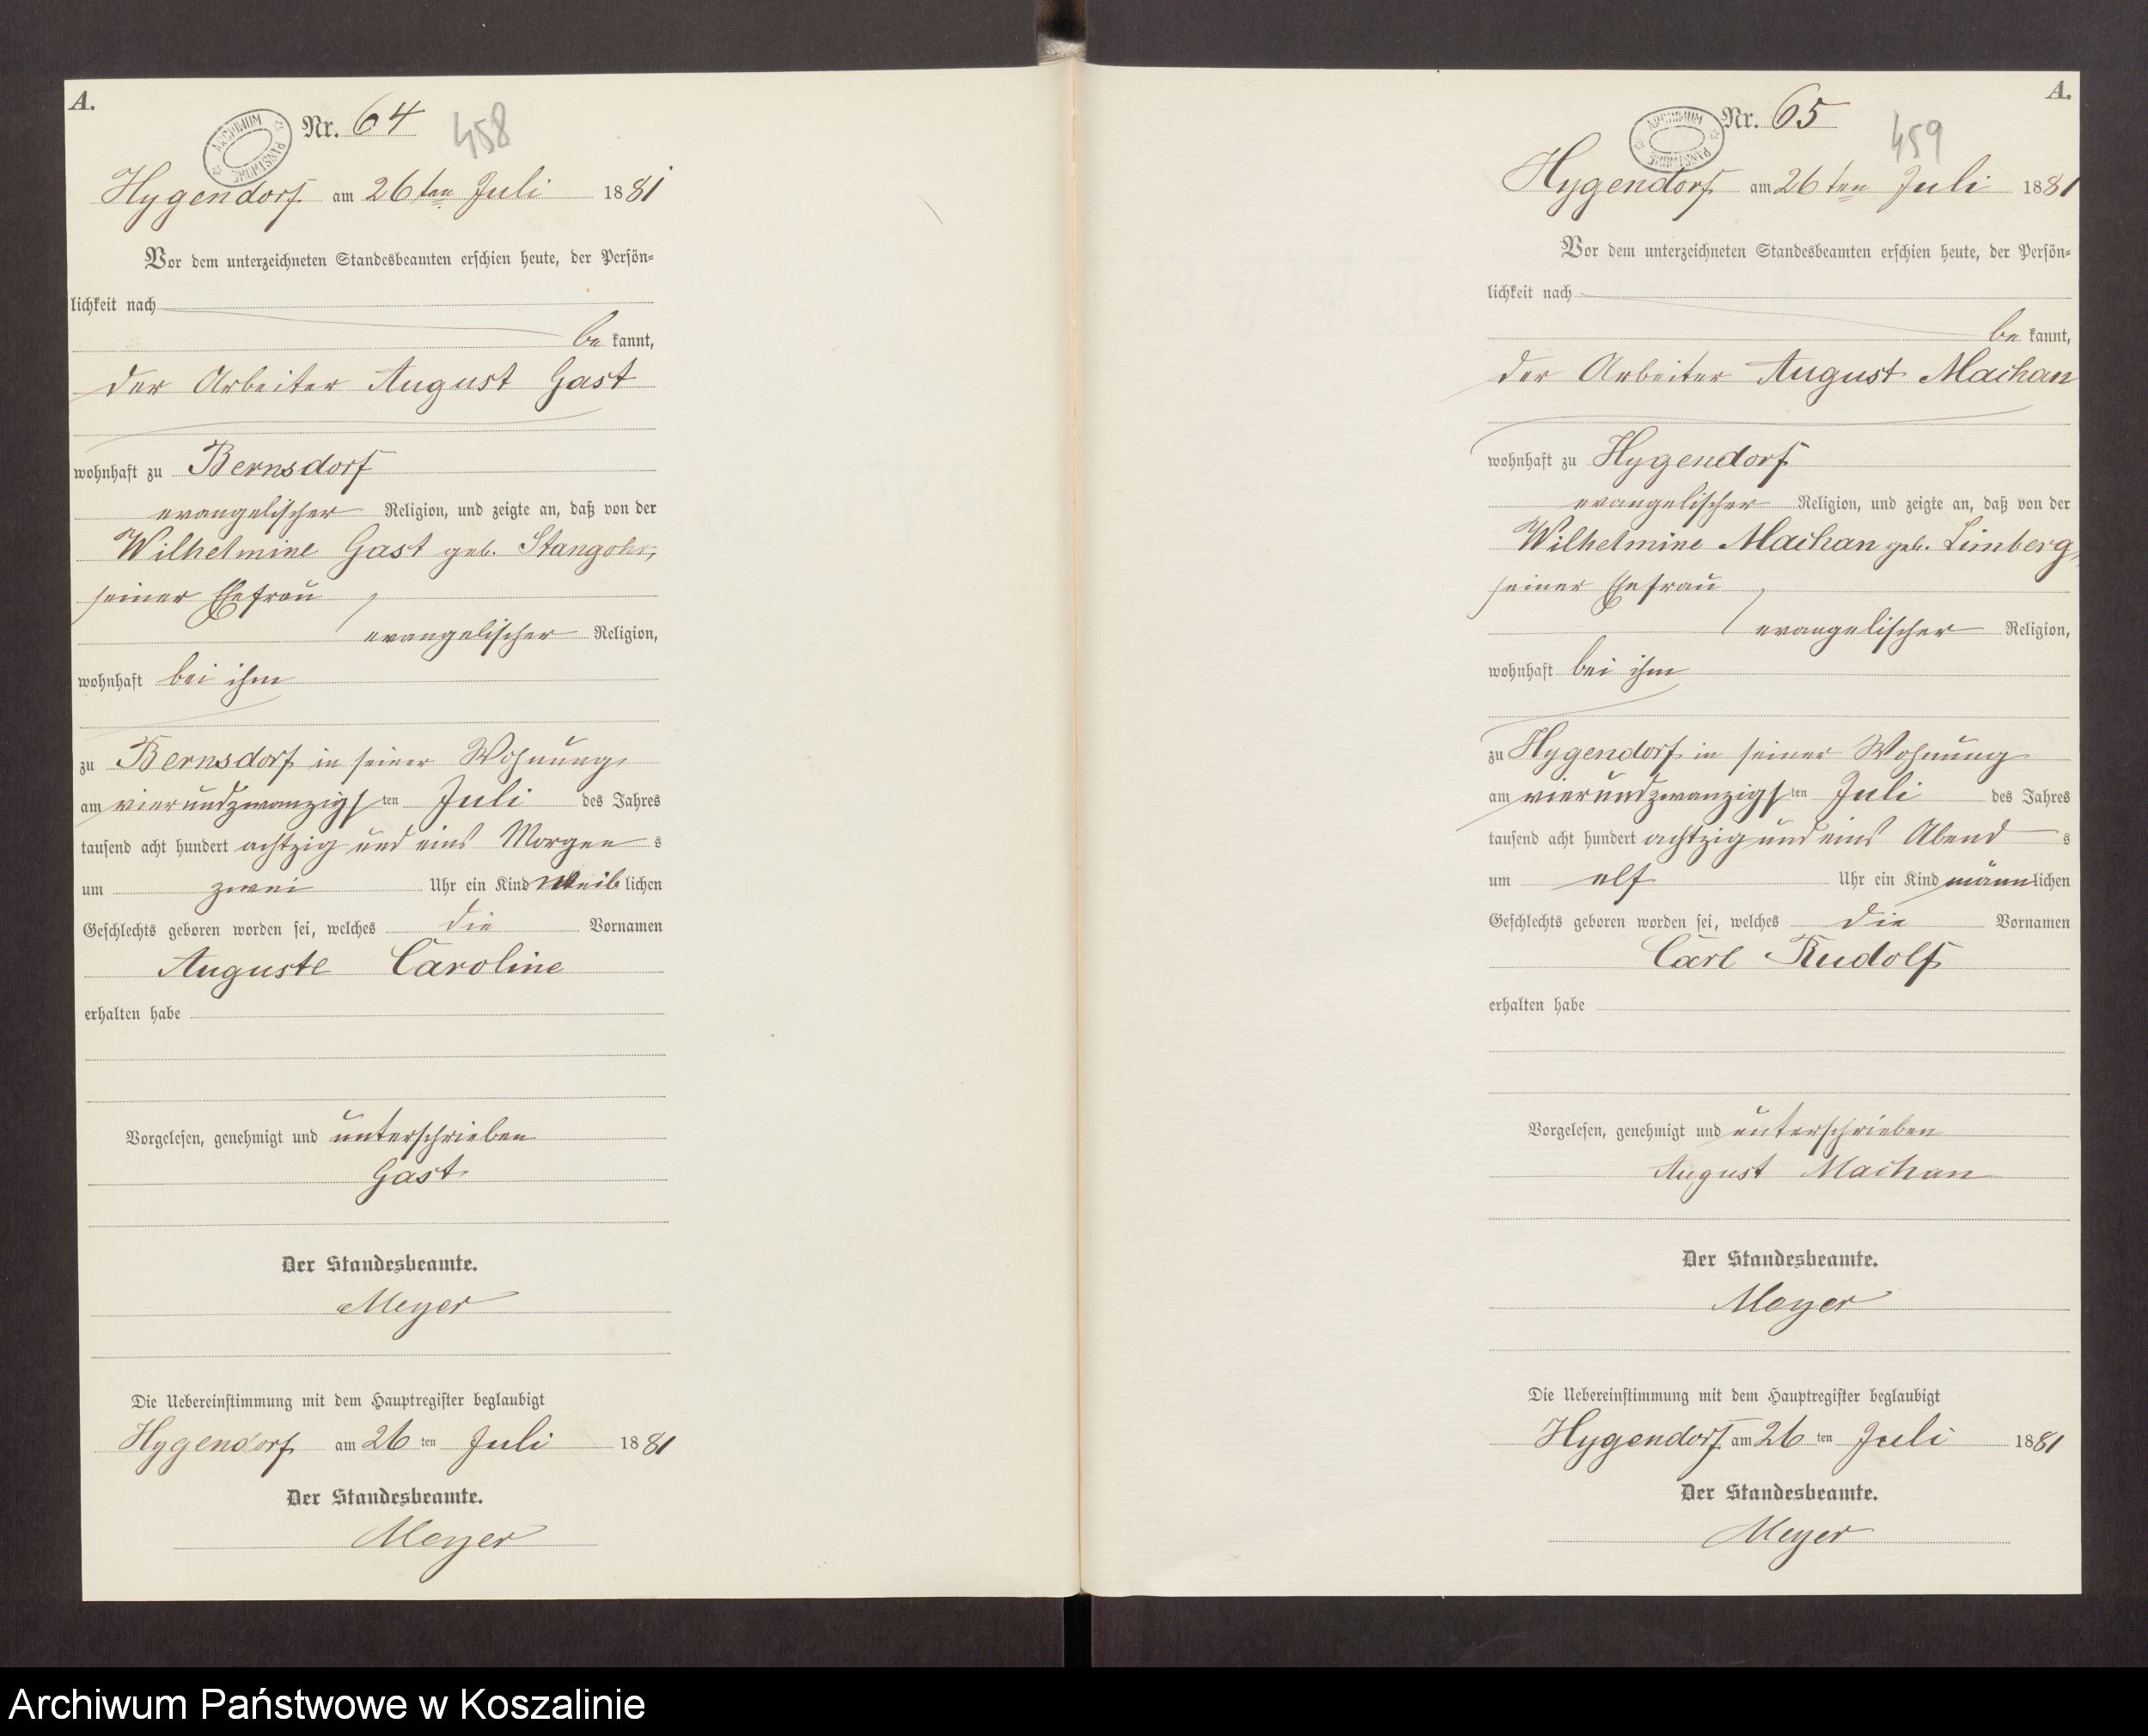 A.
ARCHIWUM PAŃSTWOWE
Nr. 64
458
Hygendorf am 26ten Juli 1881
Vor dem unterzeichneten Standesbeamten erschien heute, der Persön-
lichkeit nach
be kannt,
der Arbeiter August Gast
wohnhaft zu Bernsdorf
evangelischer Religion, und zeigte an, daß von der
Wilhelmine Gast geb. Stangohr,
seiner Ehefrau,
evangelischer Religion,
wohnhaft bei ihm
zu Bernsdorf in seiner Wohnung
am vierundzwanzigsten Juli des Jahres
tausend acht hundert achtzig und eins Morgens
um zwei Uhr ein Kind weiblichen
Geschlechts geboren worden sei, welches die Vornamen
Auguste Caroline
erhalten habe
Vorgelesen, genehmigt und unterschrieben
Gast
Der Standesbeamte.
Meyer
Die Uebereinstimmung mit dem Hauptregister beglaubigt
Hygendorf am 26ten Juli 1881
Der Standesbeamte.
Meyer
A.
ARCHIWUM PAŃSTWOWE
Nr. 65
459
Hygendorf am 26ten Juli 1881
Vor dem unterzeichneten Standesbeamten erschien heute, der Persön-
lichkeit nach
be kannt,
der Arbeiter August Machan
wohnhaft zu Hygendorf
evangelischer Religion, und zeigte an, daß von der
Wilhelmine Machan geb. Limberg,
seiner Ehefrau,
evangelischer Religion,
wohnhaft bei ihm
zu Hygendorf in seiner Wohnung
am vierundzwanzigsten Juli des Jahres
tausend acht hundert achtzig und eins Abends
um elf Uhr ein Kind männlichen
Geschlechts geboren worden sei, welches die Vornamen
Carl Rudolf
erhalten habe
Vorgelesen, genehmigt und unterschrieben
August Machan
Der Standesbeamte.
Meyer
Die Uebereinstimmung mit dem Hauptregister beglaubigt
Hygendorf am 26ten Juli 1881
Der Standesbeamte.
Meyer
Archiwum Państwowe w Koszalinie